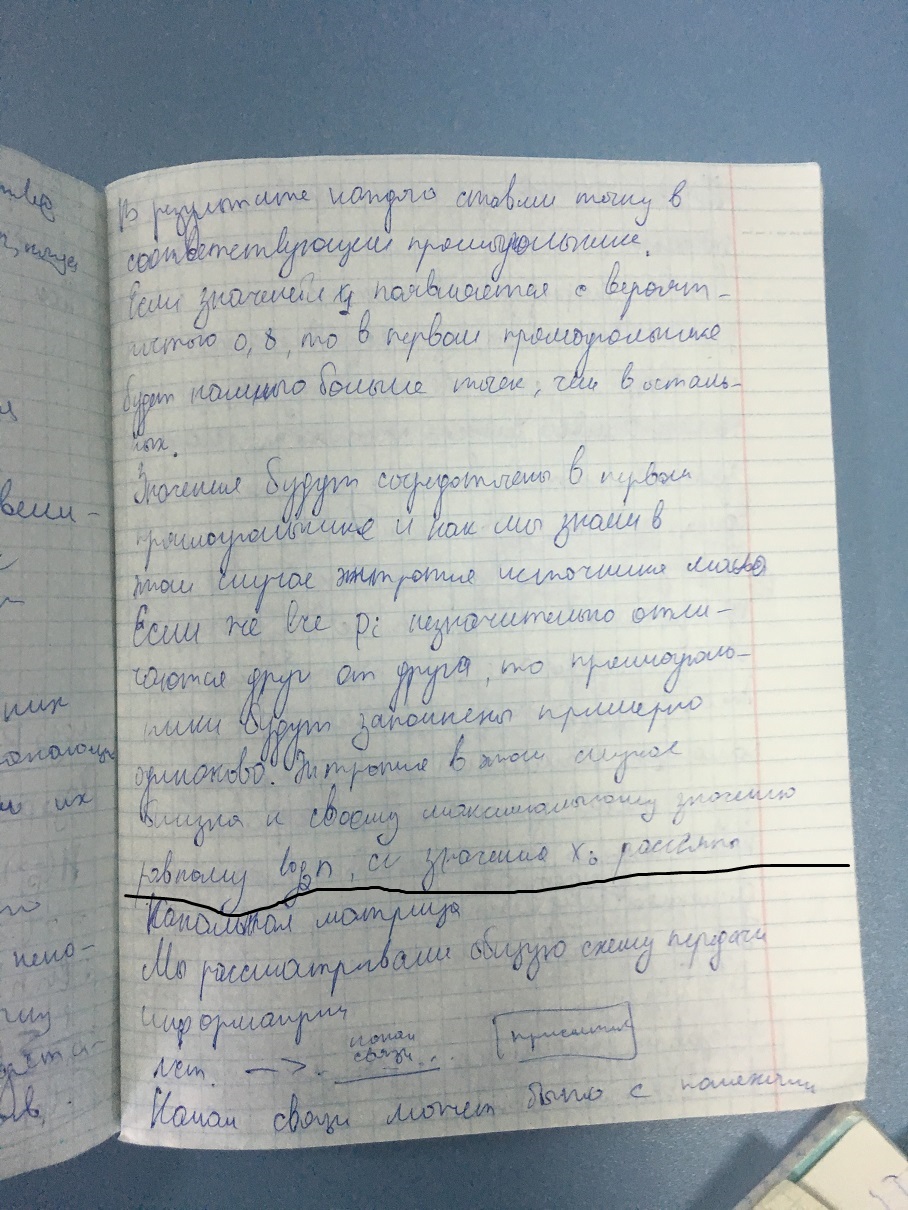 В результате каждого ставим точку в
соответствующем прямоугольнике.
Если значений x1 появляется с вероят-
ностью 0,8, то в первом прямоугольнике
будет намного больше точек, чем в осталь-
ных.
Значения будут сосредоточены в первом
прямоугольнике и как мы знаем в
этом случае энтропия источника мала
Если же все pi незначительно отли-
чаются друг от друга, то прямоуголь-
ники будут заполнены примерно
одинаково. Энтропия в этом случае
близка к своему максимальному значению
равному log2n, а значения xi рассеяны
Канальная матрица
Мы рассматривали общую схему передачи
информации
Ист. → канал связи приемник
Канал связи может быть с помехами
вели-
них
их
нено-